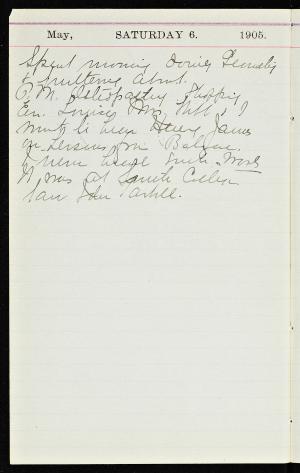 May, SATURDAY 6. 1905.
Spent morning doing
& puttering about.
P.M. Osteopathy, Shopping
Eve. Mrs. I
went to hear Henry James
on Lessons from Balzac.
I never heard such words
It was at Smith College
Saw